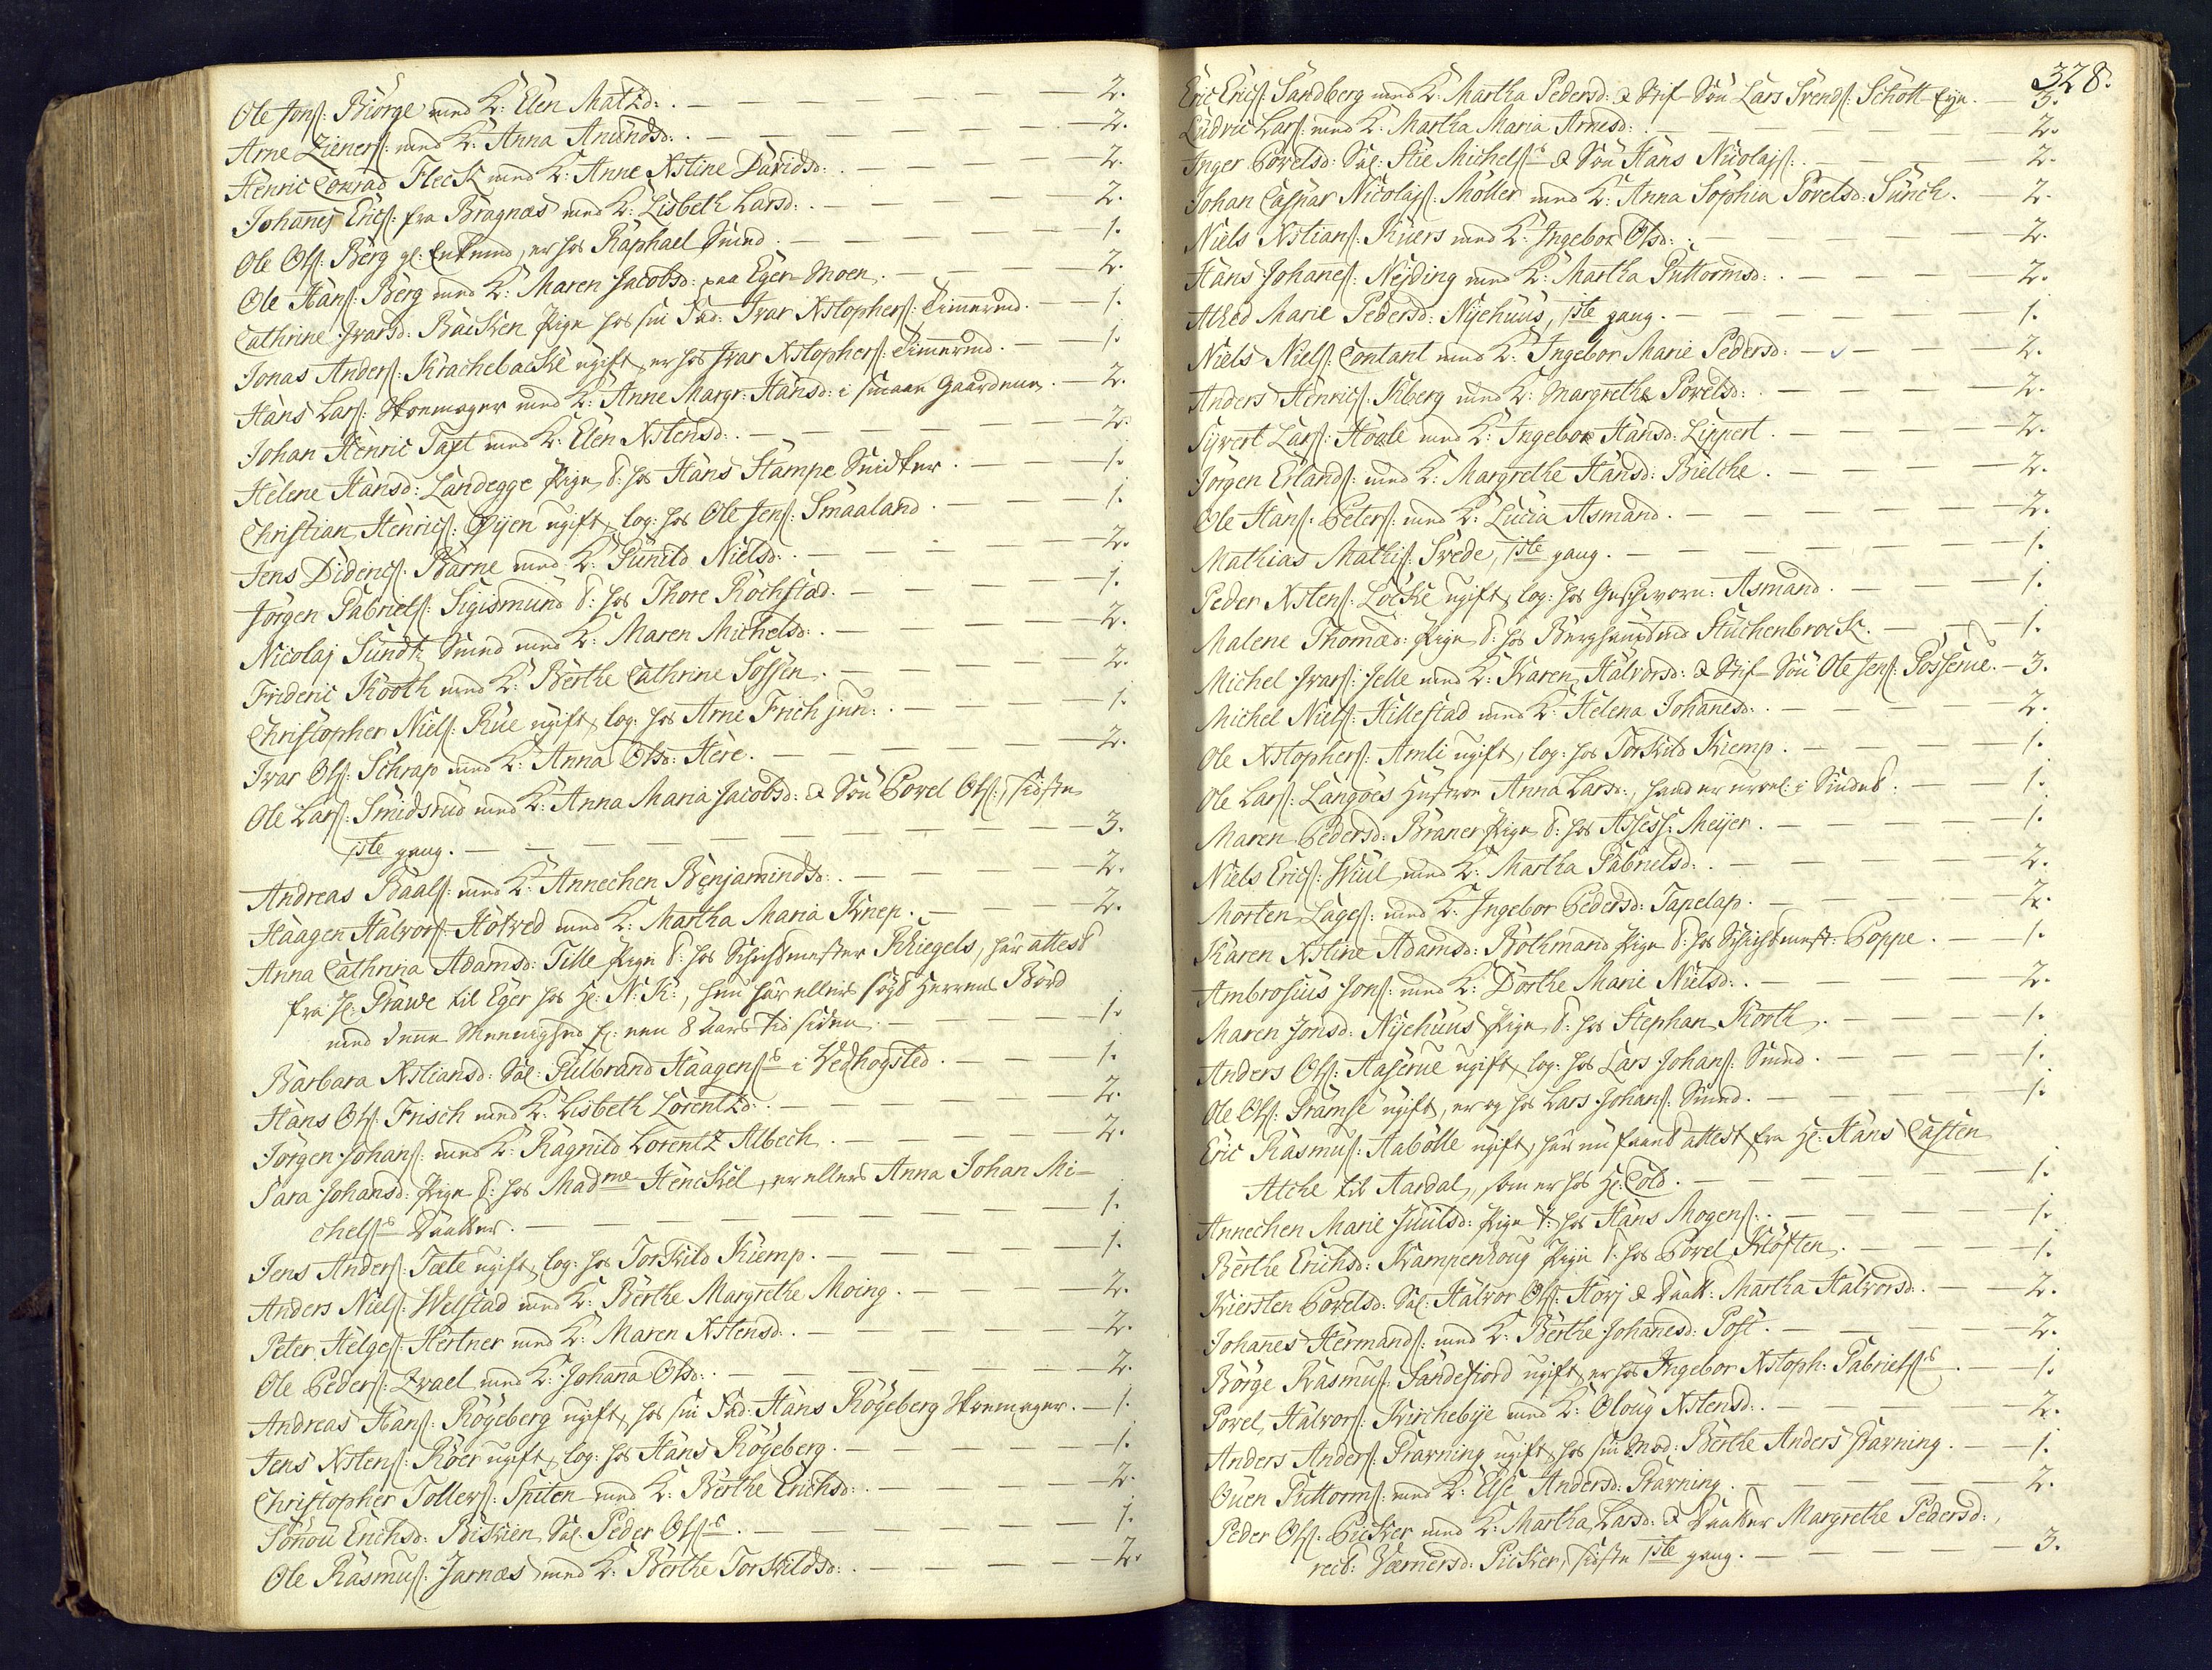 Ole Jonss: Biörge med K: Elen Matzd: . — 2.
Arne Zieners: med K: Anna Anundsd: . — 2.
Henric Conrad Fleck med K: Anne Xstine Davidsd: . — 2.
Johannes Erics: fra Bragnæs med K: Lisbeth Larsd: . — 2.
Ole Ols: Berg gl: Enkemd, er hos Raphael Smed . — 1.
Ole Hans: Berg med K: Maren Jacobsd: paa Eger-Moen . — 2.
Cathrine Ivarsd: Backen Pige hos sin Fad: Ivar Xstophers: Timermd. — 1.
Jonas Anders: Krachebacke ugift, er hos Ivar Xstophers: Timermd. — 1.
Hans Lars: Skoemager med K: Anne Margr: Hansd: i Smaae Gaardene . — 2.
Johan Henric Taft med K: Elen Xstensd: . — 2.
Helene Hansd: Landegge Pige t: hos Hans Stampe Snidker . — 1.
Christian Henrics: Öyen ugift, log: hos Ole Jens: Smaaland . — 1.
Jens Diderics: Barne med K: Gunild Nielsd: . — 2.
Jörgen Gabriels: Sigismund t: hos Thore Rochstad . — 1.
Nicolaj Sundt Smed med K: Maren Michelsd: . — 2.
Frideric Kooth med K: Berthe Cathrine Sossen . — 2.
Christopher Niels: Rue ugift, log: hos Arne Frich jun: . — 1.
Ivar Ols: Schrap med K: Anna Olsd: Here . — 2.
Ole Lars: Smidsrud med K: Anna Maria Jacobsd: & Sön Povel Ols:, sidste
1ste gang . — 3.
Andreas Baals: med K: Annechen Benjamindsd: . — 2.
Haagen Halvors: Hotved med K: Martha Maria Knep . — 2.
Anna Cathrina Adamsd: Tille Pige t: hos Schichtmester Rhiegels, har attest
fra Hr: Prawe til Eger hos Hr: N: K:, hun har ellers sögt Herrens Bord
med denne Menighed for een 8 Aars tid siden . — 1.
Barbara Xstiansd: Sal: Gulbrand Haagens:s i Vedhogsted . — 1.
Hans Ols: Frisch med K: Lisbeth Lorentzd: . — 2.
Jörgen Johans: med K: Ragnild Lorentz Albech . — 2.
Sara Johansd: Pige t: hos Madme Henckel, er ellers Anna Johan Mi-
chels:s Daatter . — 1.
Jens Anders: Tæte ugift, log: hos Torkild Kiemp . — 1.
Anders Niels: Welstad med K: Berthe Margrethe Moing . — 2.
Peter Helges: Hertner med K: Maren Xstensd: . — 2.
Ole Peders: Zvael med K: Johana Olsd: . — 2.
Andreas Hans: Rögeberg ugift, hos sin Fad: Hans Rögeberg Skoemager . — 1.
Jens Xstens: Röer ugift, log: hos Hans Rögeberg . — 1.
Christopher Tollevs: Spiten med K: Berthe Erichsd: . — 2.
Sonou Erichsd: Biskien Sal: Peder Ols:s . — 1.
Ole Rasmus: Jarnæs med K: Berthe Torkildsd: . — 2.
328.
Eric Erics: Sandberg med K: Martha Pedersd: & Stif-Sön Lars Svends: Schott-Eye . — 3.
Ludvic Lars: med K: Martha Maria Arnesd: . — 2.
Inger Povelsd: Sal: Stie Michels:s & Sön Hans Nicolajs: . — 2.
Johan Caspar Nicolajs: Möller med K: Anna Sophia Povelsd: Sunch . — 2.
Niels Xstians: Ruers med K: Ingebor Olsd: . — 2.
Hans Johanes: Nejding med K: Martha Guttormsd: . — 2.
Athed Marie Pedersd: Nyehuus, 1ste gang . — 1.
Niels Niels: Contant med K: Ingebor Marie Pedersd: — 2.
Anders Henrics: Kberg med K: Margrethe Povelsd: . — 2.
Syvert Lars: Hoale med K: Ingebor Hansd: Lippert . — 2.
Jörgen Erlands: med K: Margrethe Hansd: Bielche . — 2.
Ole Hans: Peters: med K: Lucia Asmand . — 2.
Mathias Mathis: Svede, 1ste gang . — 1.
Peder Xstens: Locke ugift, log: hos Geschworn: Asmand . — 1.
Malene Thomæd: Pige t: hos Berghauptmd Stuchenbrock . — 1.
Michel Ivars: Jelle med K: Karen Halvorsd: & Stif-Sön Ole Jens: Gosserue . — 3.
Michel Niels: Hillestad med K: Helena Johanesd: . — 2.
Ole Xstophers: Amli ugift, log: hos Torkild Kiemp . — 1.
Ole Lars: Langoes Hustroe Anna Larsd:, hand er uroel: i Sindet . — 1.
Maren Pedersd: Braner Pige t: hos Assess: Meijer . — 1.
Niels Erics: Kiul med K: Martha Gabrielsd: . — 2.
Morten Lages: med K: Ingebor Pedersd: Tapelap . — 2.
Karen Xstine Adamsd: Bothmand Pige t: hos Schichtmest: Poppe . — 1.
Ambrosius Jons: med K: Dorthe Marie Nielsd: . — 2.
Maren Jonsd: Nyehuus Pige t: hos Stephan Kooth . — 1.
Anders Ols: Aaserue ugift, log: hos Lars Johans: Smed . — 1.
Ole Ols: Gramse ugift, er og hos Lars Johans: Smed . — 1.
Eric Rasmus: Aabölle ugift, har nu faaed attest fra Hr: Hans Casten
Atche til Aardal, som er hos Hr: Cold . — 1.
Annechen Marie Juulsd: Pige t: hos Hans Mogens: . — 1.
Berthe Erichsd: Kampenhoug Pige t: hos Povel Klöften . — 1.
Kiersten Povelsd: Sal: Halvor Ols: Horj & Daatt: Martha Halvorsd: . — 2.
Johanes Hermands: med K: Berthe Johanesd: Post . — 2.
Börge Rasmus: Sandefiord ugift, er hos Ingebor Xstoph: Gabriels:s . — 1.
Povel Halvors: Kirchebye med K: Oloug Xstensd: . — 2.
Anders Anders: Gravning ugift, hos sin Mod: Berthe Anders Gravning . — 1.
Ouen Guttorms: med K: Else Andersd: Gravning . — 2.
Peder Ols: Pucker med K: Martha Larsd: & Daatter Margrethe Pedersd:,
rect: Værnersd: Pucker, sidste 1ste gang . — 3.